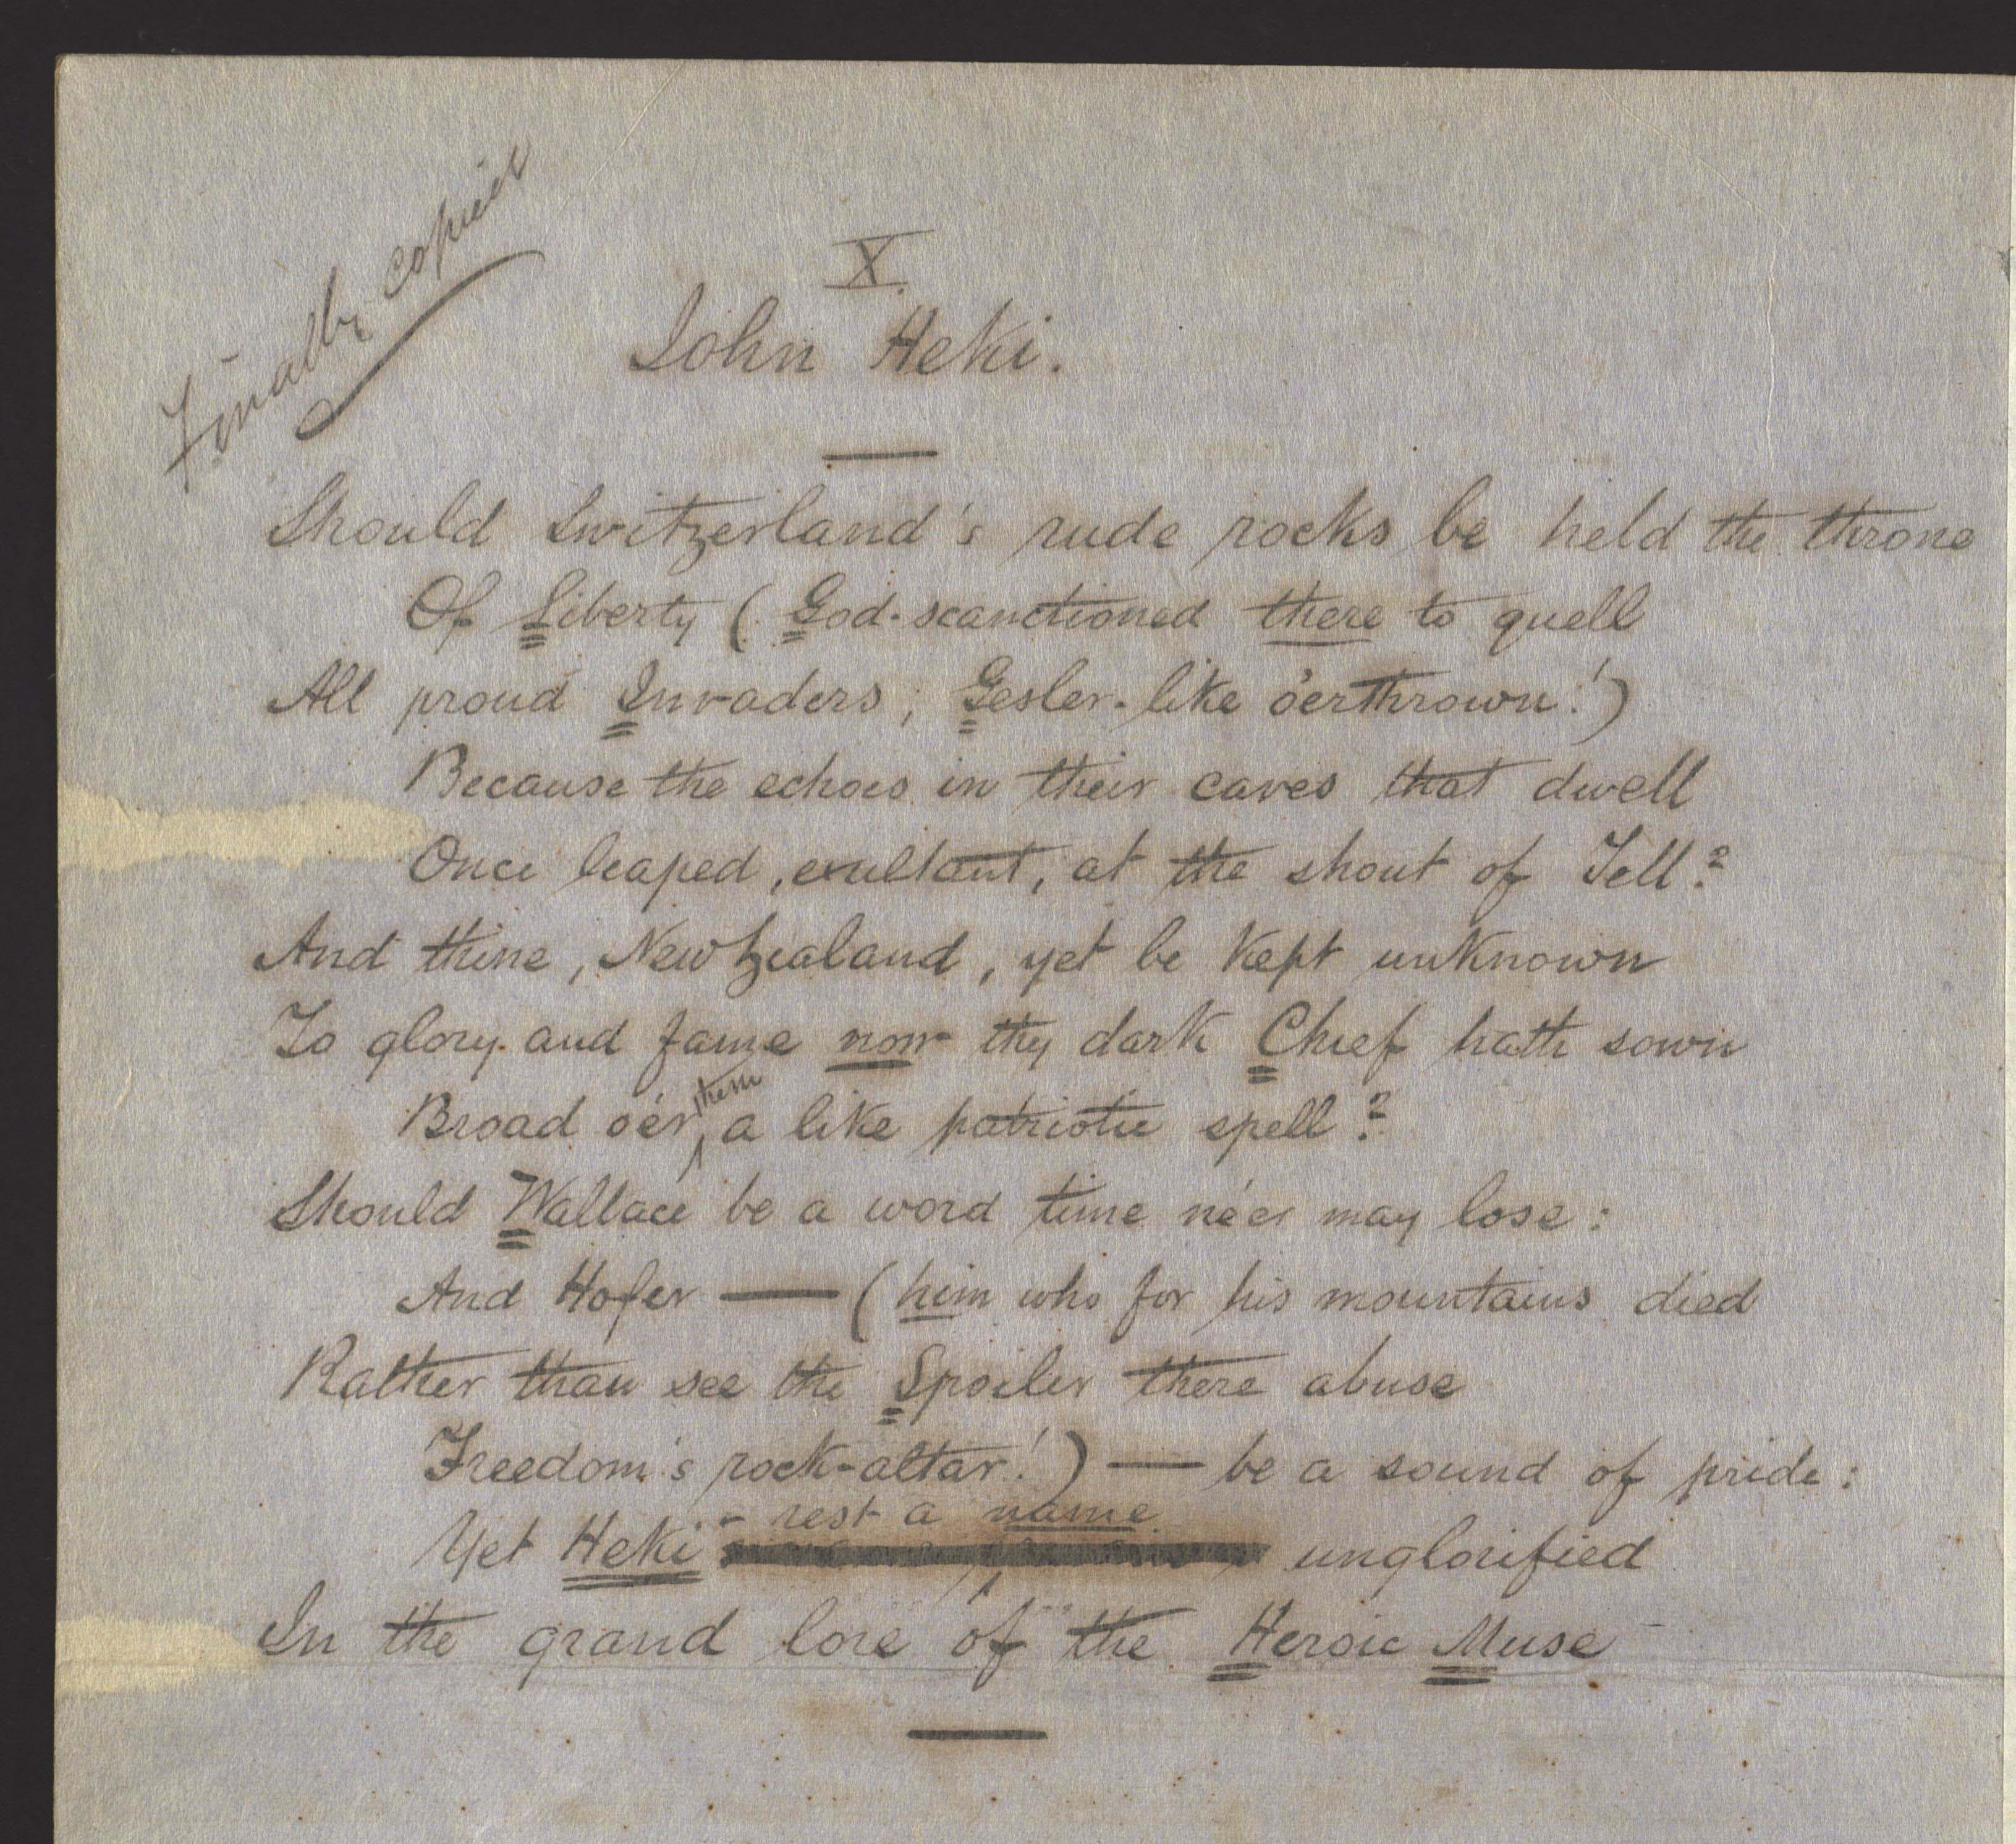 Finally copied
X.
John Heki.
Should Switzerland's rude rocks be held the throne
Of Liberty (God-scanctioned there to quell
All proud Invaders, Gesler-like o'erthrown!)
Because the echoes in their caves that dwell
Once leaped, exultant, at the shout of Tell?
And thine, New Zealand, yet be kept unknown
To glory and fame now thy dark Chief hath sown
them
Broad o'er, a like patriotic spell?
Should Wallace be a word time ne'er may lose:
And Hofer — (him who for his mountains died
Rather than see the Spoiler there abuse
Freedom's rock-altar!) — be a sound of pride:
- rest a name
Yet Heki unglorified
In the grand lore of the Heroic Muse